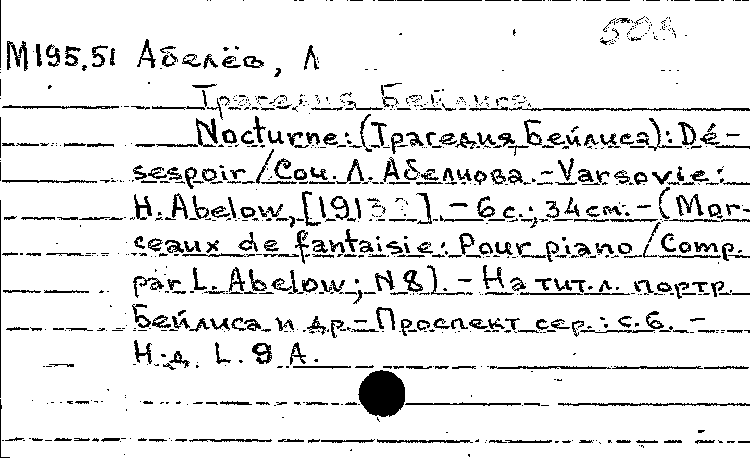 М195.51 Абелёв, Л
Трагедия Бейлиса
Nocturne: (Трагедия Бейлиса): Dé-
sespoir / Соч. Л. Абелиова. - Varsovie:
H. Abelow, [1913?]. - 6 с.; 34 см. - (Mor-
ceaux de fantaisie: Pour piano / Comp.
par L. Abelow; N 8). - На тит. л. портр.
Бейлиса и др. - Проспект сер.: с. 6. -
Н.д. L. 9 A.